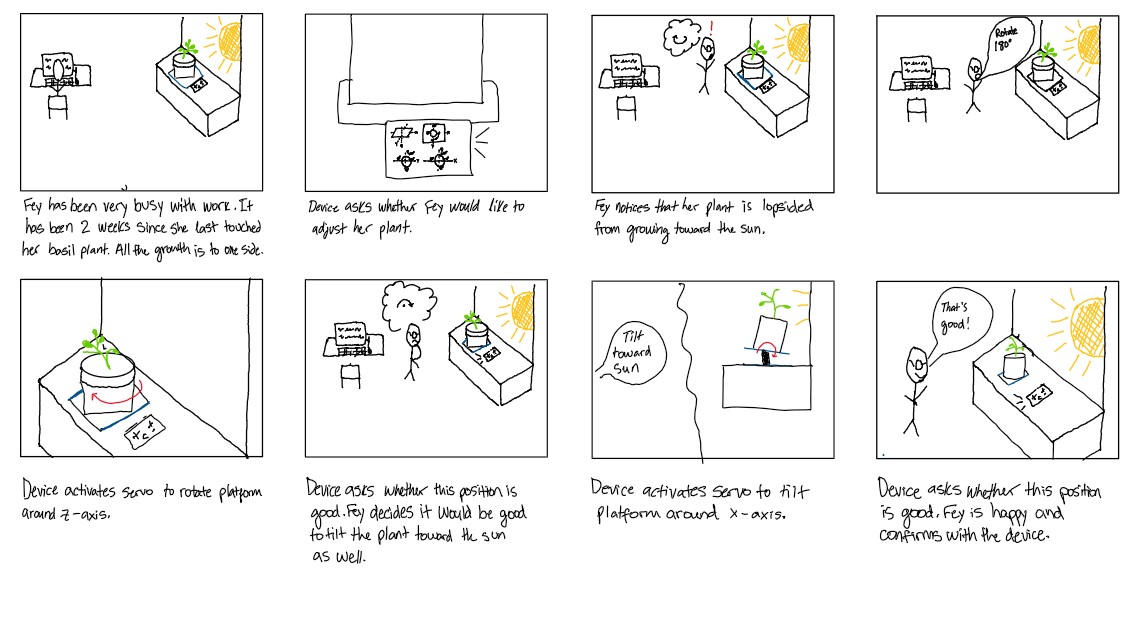 Rotate
180°
Fey has been very busy with work. It
has been 2 weeks since she last touched
her basil plant. All the growth is to one side.
Device asks whether Fey would like to
adjust her plant.
Fey notices that her plant is lopsided
from growing toward the sun.
Tilt
toward
sun
That's
good!
Device activates servo to rotate platform
around z-axis.
Device asks whether this position is
good. Fey decides it would be good
to tilt the plant toward the sun
as well.
Device activates servo to tilt
platform around x-axis.
Device asks whether this position
is good. Fey is happy and
confirms with the device.